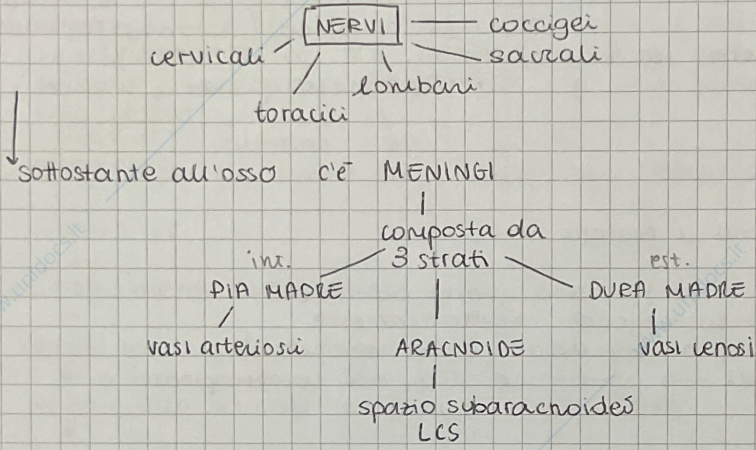 NERVI
coccigei
cervicali
sacrali
lombari
toracici
sottostante all'osso c'è MENINGI
composta da
3 strati
int.
est.
PIA MADRE
DURA MADRE
vasi arteriosi
ARACNOIDE
vasi venosi
spazio subaracnoideo
LCS
www.unidocs.it